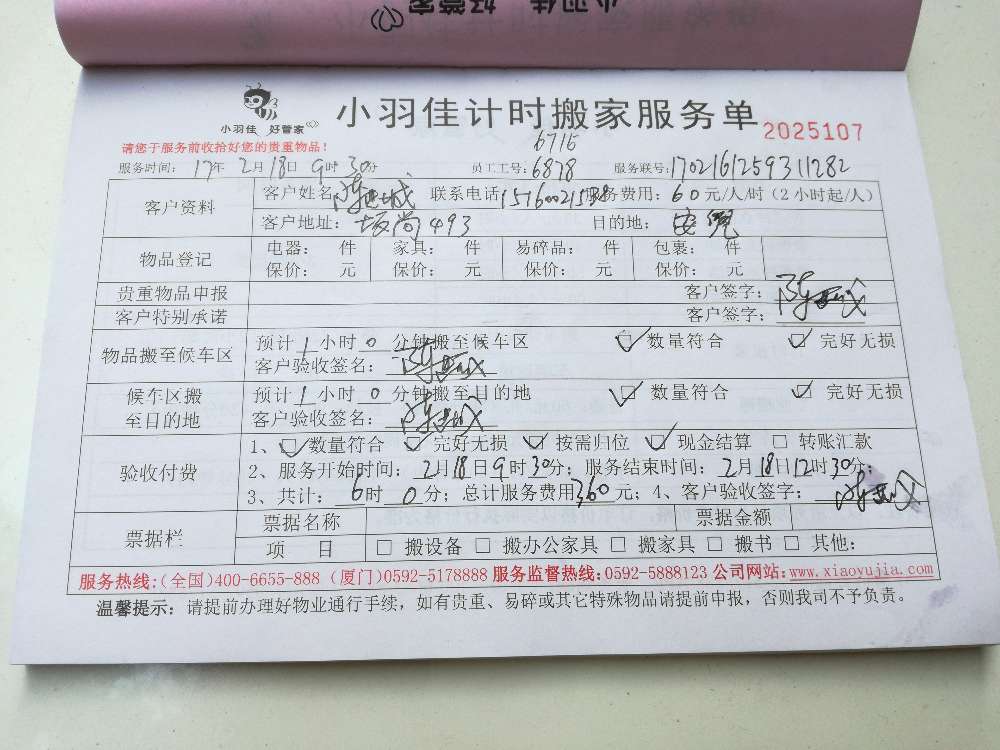 小羽佳 好管家
小羽佳 好管家
小羽佳计时搬家服务单
2025107
请您于服务前收拾好您的贵重物品!
6716
服务时间: 17年 2月18日 9时30分 员工工号: 6878 服务联号: 17021612593 11282
客户资料
客户姓名 联系电话 服务费用: 60元/人/时 (2小时起/人)
客户地址: 坂尚493 目的地: 安兜
物品登记
电器: 件 家具: 件 易碎品: 件 包裹: 件
保价: 元 保价: 元 保价: 元 保价: 元
贵重物品申报 客户签字:
客户特别承诺 客户签字:
物品搬至候车区
预计1小时0分钟搬至候车区 ☑数量符合 ☑完好无损
客户验收签名:
候车区搬至目的地
预计1小时0分钟搬至目的地 ☑数量符合 ☑完好无损
客户验收签名:
验收付费
1、☑数量符合 ☑完好无损 ☑按需归位 ☑现金结算 □转账汇款
2、服务开始时间: 2月18日9时30分; 服务结束时间: 2月18日12时30分;
3、共计: 6时0分; 总计服务费用360元; 4、客户验收签字:
票据栏
票据名称 票据金额
项 目 □搬设备 □搬办公家具 □搬家具 □搬书 □其他:
服务热线:(全国)400-6655-888 (厦门)0592-5178888 服务监督热线:0592-5888123 公司网站:www.xiaoyujia.com
温馨提示: 请提前办理好物业通行手续, 如有贵重、易碎或其它特殊物品请提前申报, 否则我司不予负责。